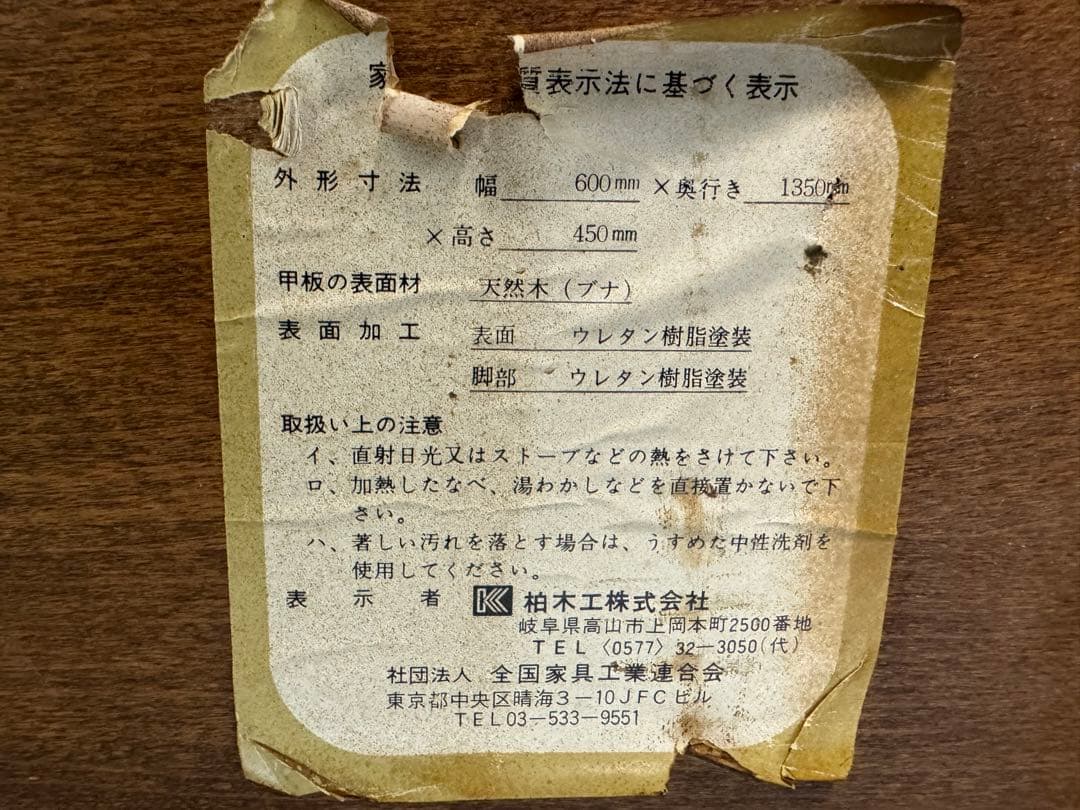 家 質表示法に基づく表示
外形寸法 幅 600mm ×奥行き 1350mm
×高さ 450mm
甲板の表面材 天然木(ブナ)
表面加工 表面 ウレタン樹脂塗装
脚部 ウレタン樹脂塗装
取扱い上の注意
イ、直射日光又はストーブなどの熱をさけて下さい。
ロ、加熱したなべ、湯わかしなどを直接置かないで下
さい。
ハ、著しい汚れを落とす場合は、うすめた中性洗剤を
使用してください。
表示者 柏木工株式会社
岐阜県高山市上岡本町2500番地
TEL〈0577〉32-3050(代)
社団法人 全国家具工業連合会
東京都中央区晴海3-10JFCビル
TEL03-533-9551